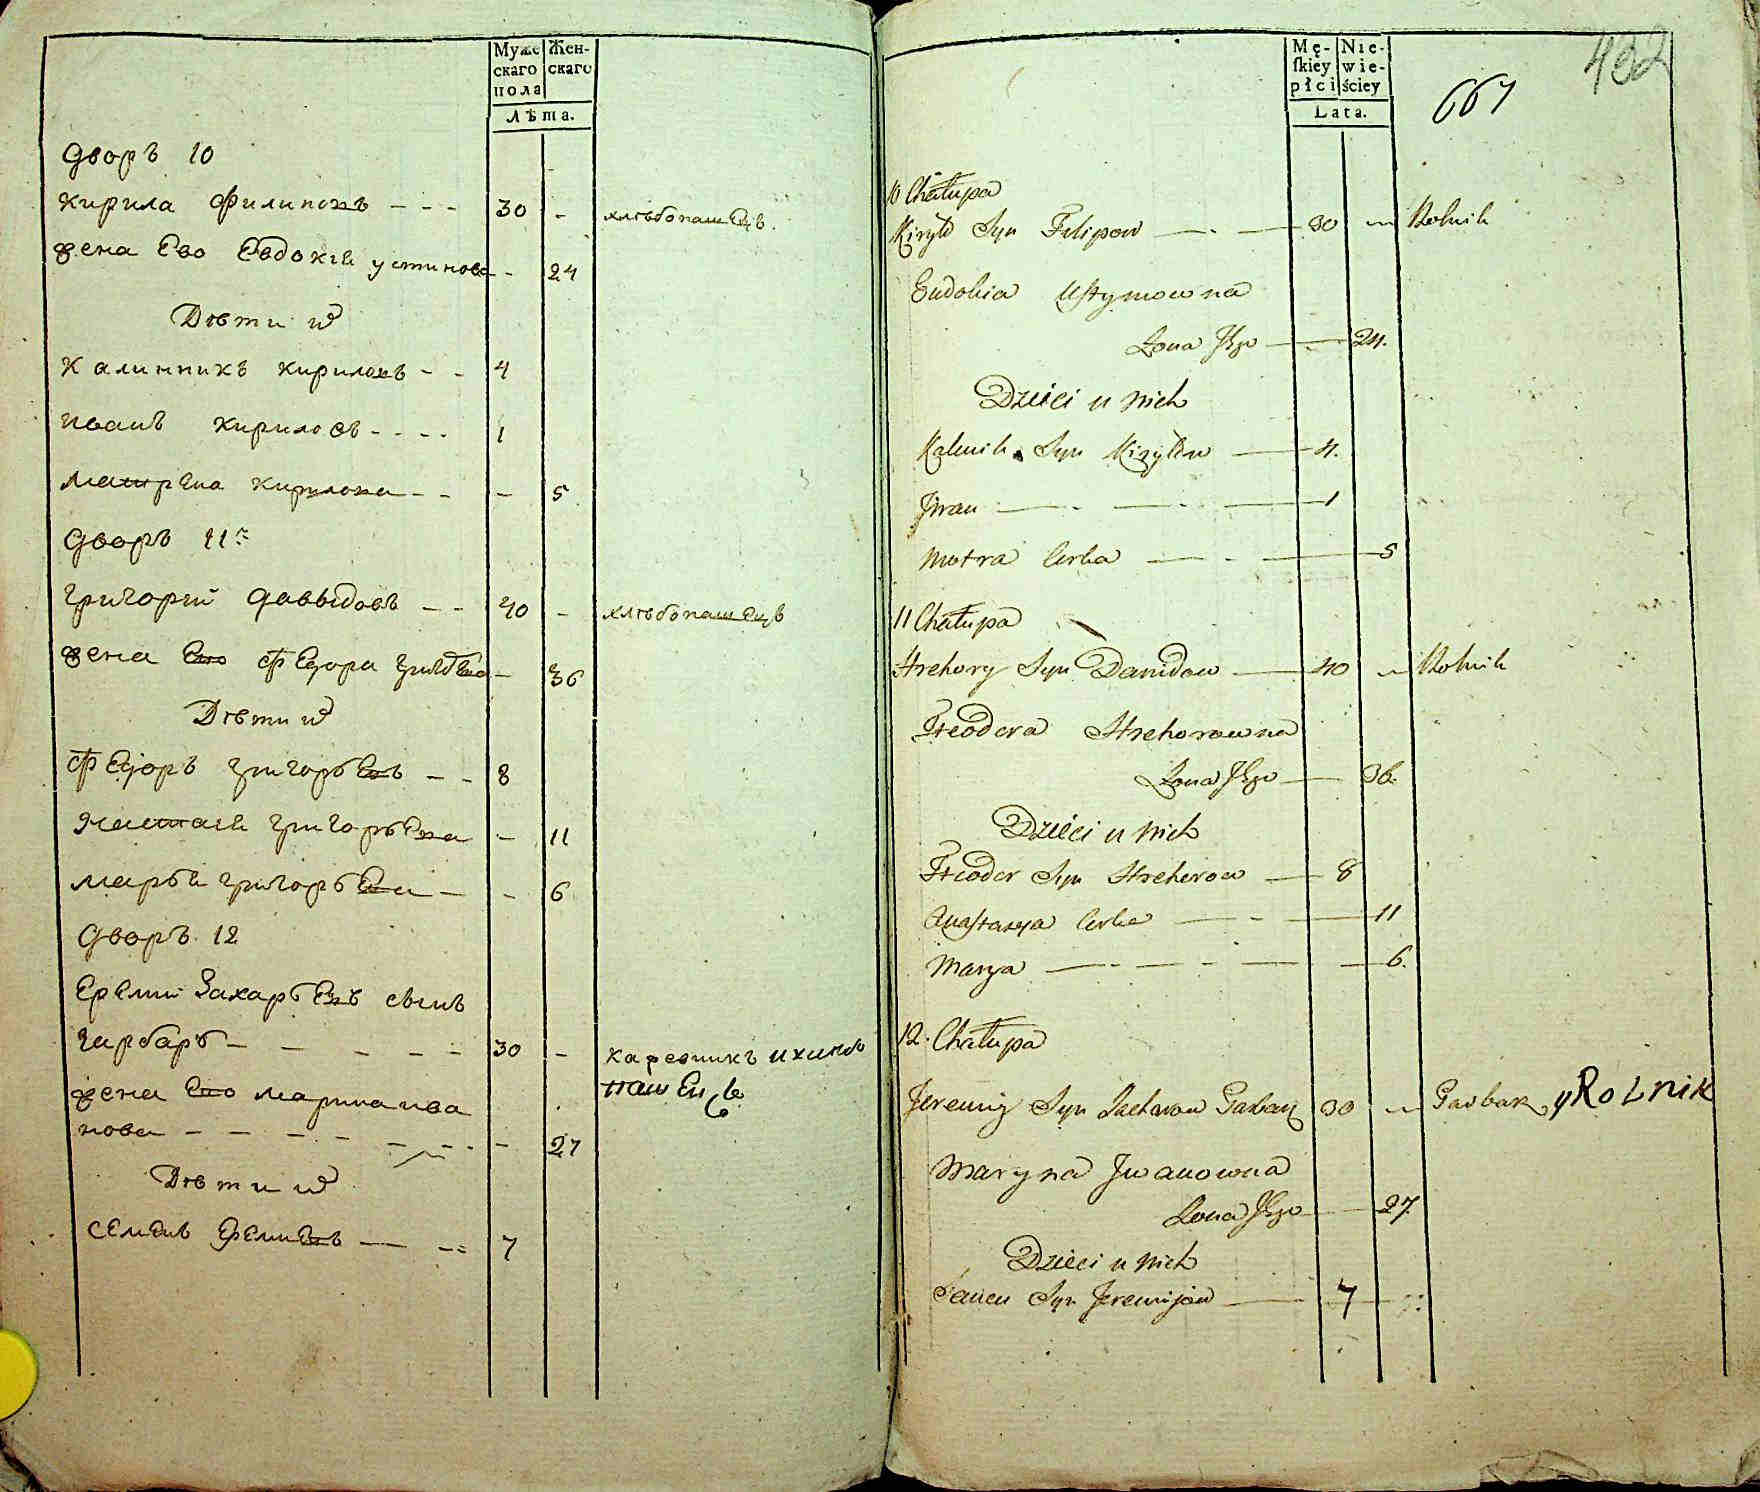 Муже Жен-
скаго скаго
пола
Лѣта.
дворъ 10
кирила филиповъ - - - 30 - хлѣбопашецъ.
жена Ево Евдокия устинова - 24
Дѣти их
Калинникъ кириловъ - - 4
иванъ кириловъ - - - - 1
матрена кирилова - - - 5
дворъ 11
григорий давыдовъ - - 40 - хлѣбопашецъ
жена Ево федора григорьева - 36
Дѣти их
федоръ григорьевъ - - 8
настасия григорьева - 11
марья григорьева - - 6
дворъ 12
Еремий Захарьевъ сынъ
гарбаръ - - - - - 30 - кожевникъ и хлѣбо
пашецъ
жена Ево марина ива
нова - - - - - - - - 27
Дѣти их
семенъ Еремиевъ - - - 7
Mę- Nie-
ſkiey wie-
płci ściey
Lata.
432
667
10 Chałupa
Kiryło Syn Filipow 30 Rolnik
Eudokia Ustymowna
Żona Jego 24.
Dzieci u nich
Kalinik Syn Kiryłow 4.
Jwan 1
Motra Corka 5
11 Chałupa
Hrehory Syn Dawidow 40 Rolnik
Feodora Hrehorowna
Żona Jego 36.
Dzieci u nich
Feodor Syn Hrehorow 8
Anastasya Corka 11
Marya 6.
12. Chałupa
Jeremiy Syn Zacharow Garbarz 30 Garbarz, y Rolnik
Maryna Jwanowna
Żona Jego 27
Dzieci u nich
Semen Syn Jeremijow 7